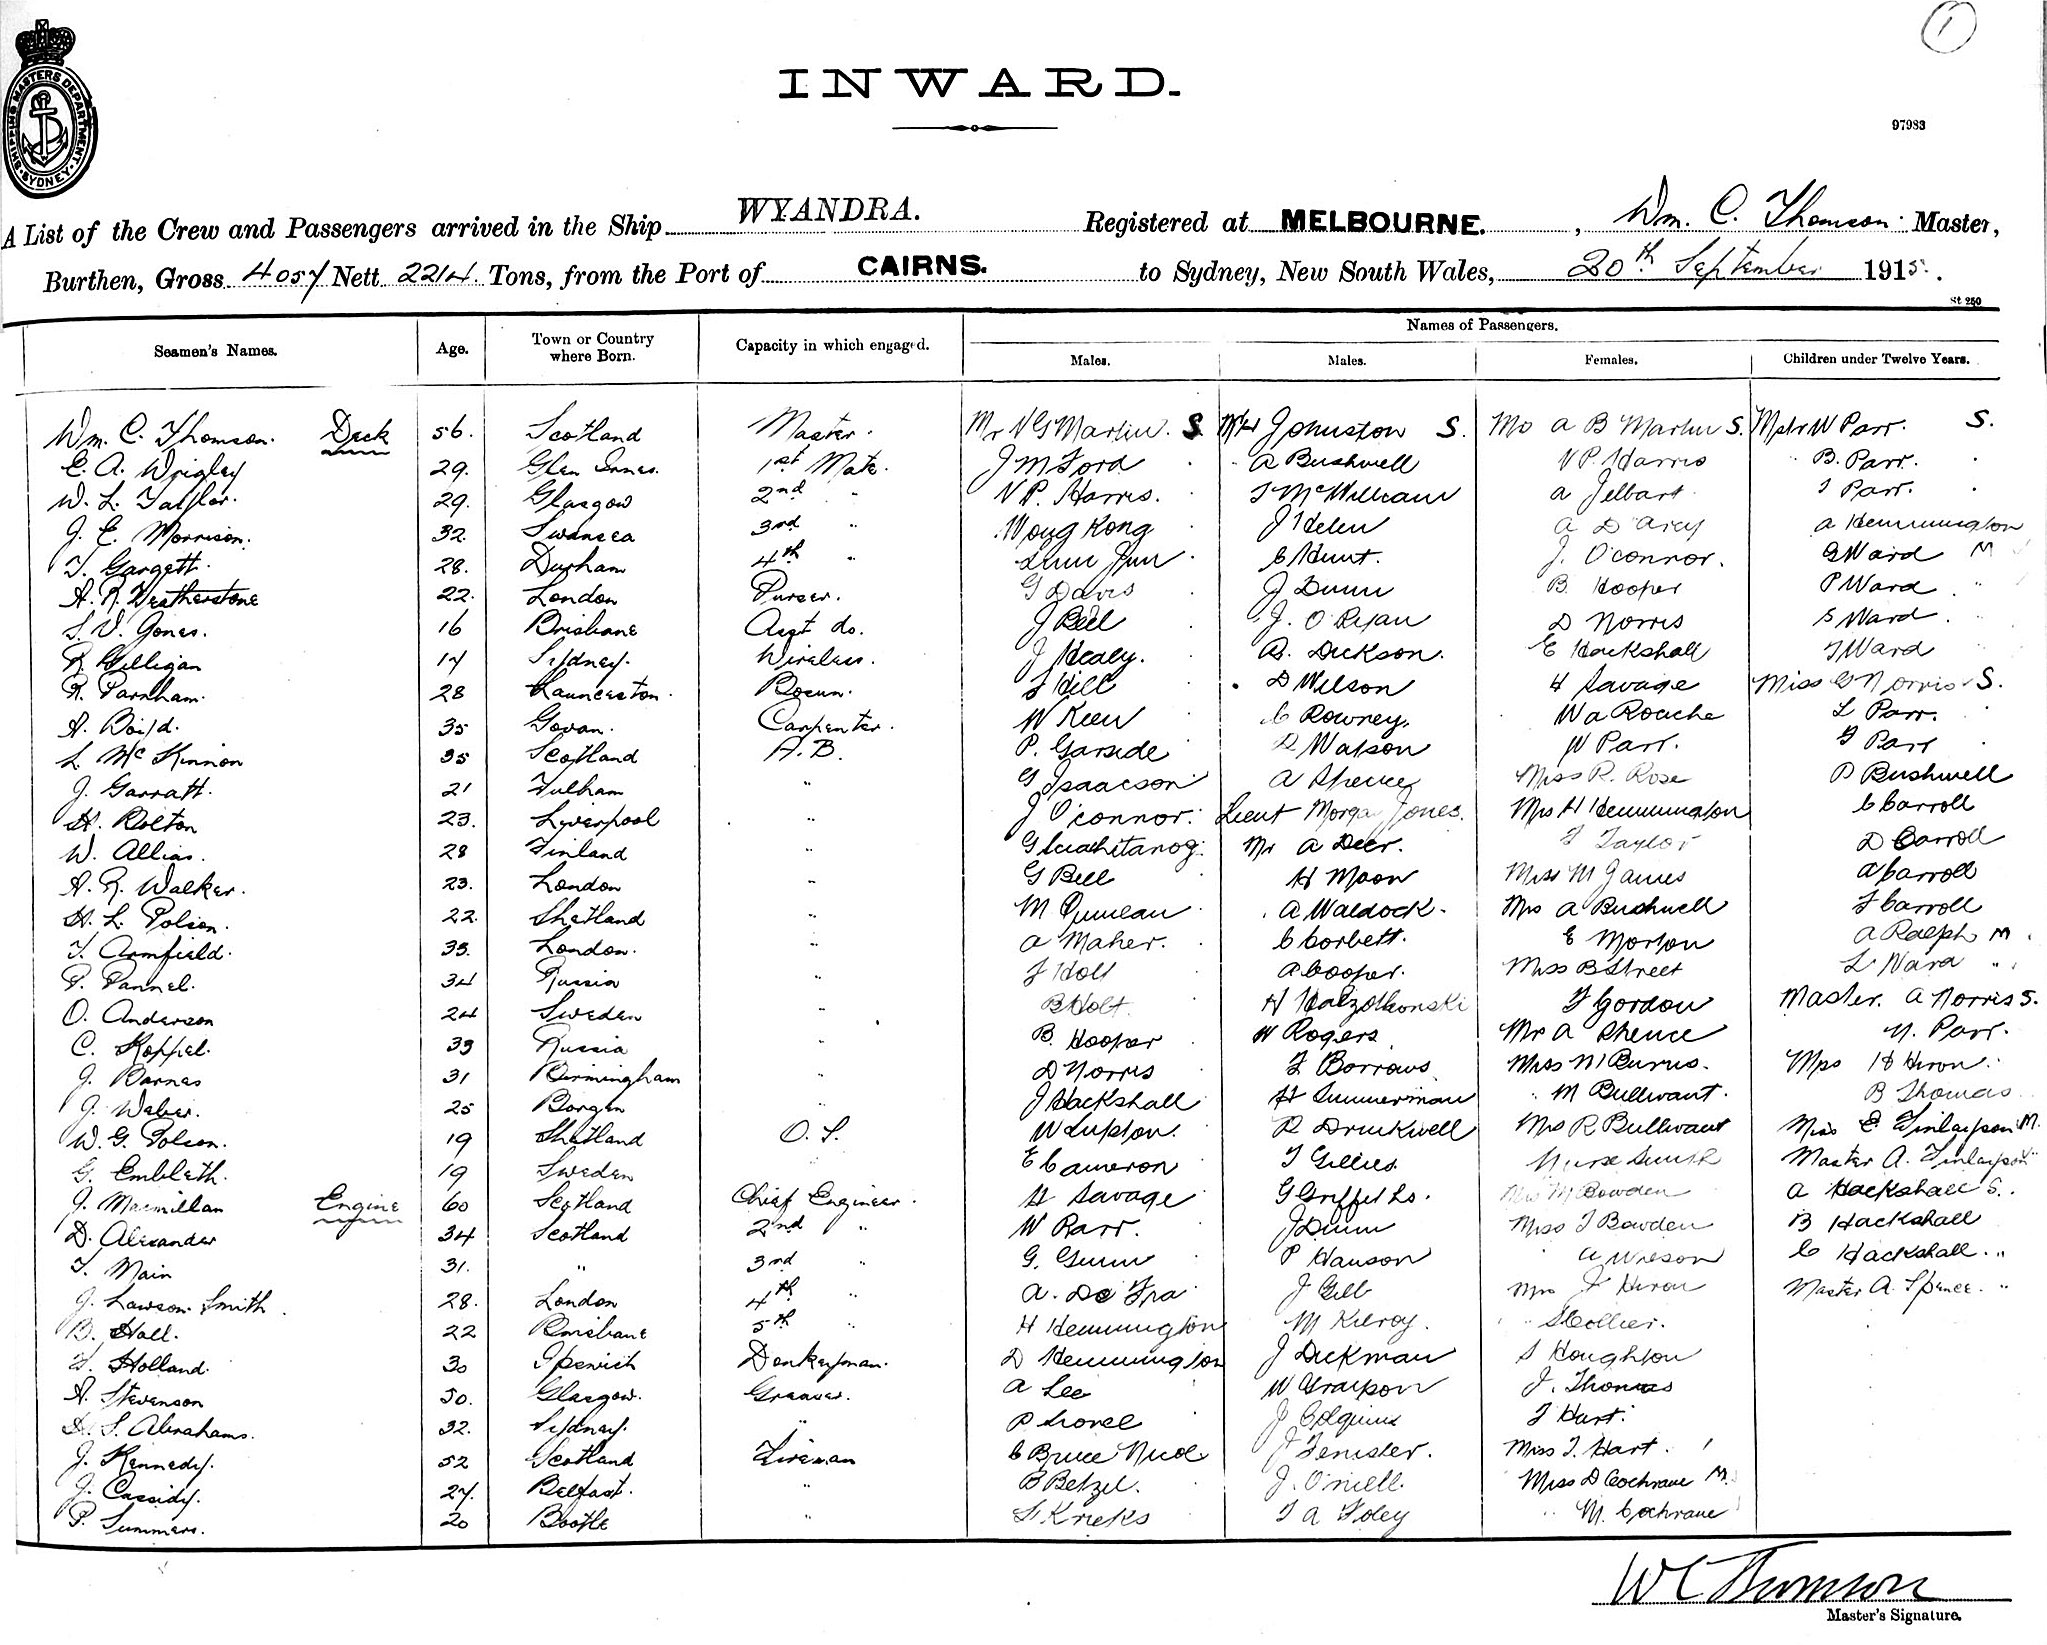 1
INWARD.
SHIPPING MASTERS DEPARTMENT. SYDNEY.
97983
A List of the Crew and Passengers arrived in the Ship WYANDRA. Registered at MELBOURNE. , Wm. C. Thomson Master,
Burthen, Gross 4057 Nett 2214 Tons, from the Port of CAIRNS. to Sydney, New South Wales, 20th September 1915.
St 250
Names of Passengers.
Seamen's Names. Age. Town or Country where Born. Capacity in which engaged. Males. Males. Females. Children under Twelve Years.
Wm. C. Thomson. Deck 56. Scotland Master. Mr N G Martin. S. Johnston S. A B Martin S. W Parr. S.
E. A. Wrigley 29. Glen Innes. 1st Mate. J M Ford A Bushwell V P. Harris B. Parr.
W. L. 29. Glasgow 2nd " V P. Harris. J McWilliam A Jelbart J Parr.
J. E. Morrison. 32. Swansea 3rd " Wong Kong J Helen A D'Arcy A Hemmington
T. Gargett. 28. Durham 4th " C Hunt. J. O'Connor. G Ward M
A. R. Weatherstone 22. London Purser. G Davis J Dunn B. Hooper P Ward "
S. V. Jones. 16 Brisbane Asst do. J Bell J. O'Ryan D Norris S Ward "
R Gilligan 17 Sydney. Wireless. J Healy. A. Dickson. E Hackshall J Ward "
R. Parnham. 28 Launceston. Bosun. J Hill D Wilson H Savage Miss G Norris S.
A. Boyd. 35 Govan. Carpenter. W Keen C Rowney. W A Roache L Parr.
L. McKinnon 35 Scotland A.B. P. Garside D Watson W Parr. G Parr
J. Garratt. 21 Fulham " G Isaacson A Spence Miss R. Rose D Bushwell
H. Bolton 23. Liverpool " J O'Connor. Lieut Morgan Jones. Mrs H Hemmington C Carroll
W. Allias. 28 Finland " Mr A Deer. J Taylor D Carroll
A. R. Walker. 23. London " G Bell H Moon Miss M James A Carroll
H. L. Polson. 22. Shetland " M Duncan A Waldock. Mrs A Bushwell J Carroll
T. Armfield. 33. London. " A Maher. C Corbett. E Morton A Ralph M.
P. Pannel. 34 Russia " J Holt A Cooper. Miss B Street L Ward "
O. Anderson 24 Sweden " B Holt. H J Gordon Master. A Norris S.
C. Koppel. 33 Russia " B. Hooper W Rogers Mr A Spence N. Parr.
J. Barnes 31 Birmingham " D Norris J Borrows. Miss M Burns. Mrs H Heron.
J. Weber. 25 Bergen " J Hackshall H Summerman " M Bullivant. B Thomas
W. G. Polson. 19 Shetland O. S. W Lupton. R Drinkwell Mrs R Bullivant Miss E. Finlayson M.
G. Embleth. 19 Sweden " E Cameron J Gillies. Nurse Smith Master A. Finlayson "
J. Macmillan Engine 60 Scotland Chief Engineer. H Savage G Griffiths. M Bowden A Hackshall S.
D. Alexander 34 Scotland 2nd " W Parr. J Dunn Miss J Bowden B Hackshall
T. Main 31. " 3rd " G. Gunn P Hanson A Wilson C Hackshall. "
J. Lawson-Smith. 28. London 4th " A. De Fra J Gill Mrs J Heron Master A. Spence. "
B. Hall. 22 Brisbane 5th " H Hemmington M Kilroy. " S Collier.
H. Holland. 30 Ipswich Donkeyman. D Hemmington J Dickman S Houghton
A. Stevenson 50. Glasgow. Greaser. A Lee W Grayson J. Thomas
H. S. Abrahams. 32. Sydney. " P Lionel J Colquins J Hart.
J. Kennedy. 52 Scotland Fireman C Bruce Nicol J Fenister. Miss J. Hart.
J. Cassidy. 27. Belfast. " B Betzel. J. O'Neill. Miss D Cochrane M.
P. Summers. 20 Bootle " S Krieks J A Foley " M. Cochrane
W C Thomson
Master's Signature.